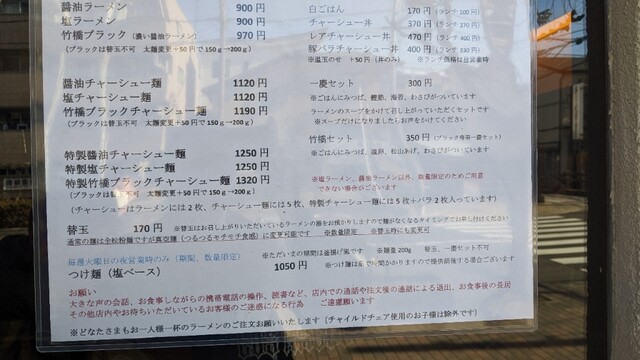 醤油ラーメン 900 円
塩ラーメン 900 円
竹橋ブラック（濃い醤油ラーメン） 970 円
（ブラックは替玉不可 太麺変更＋50 円で 150ｇ→200ｇ）
醤油チャーシュー麺 1120 円
塩チャーシュー麺 1120 円
竹橋ブラックチャーシュー麺 1190 円
（ブラックは替玉不可 太麺変更＋50 円で 150ｇ→200ｇ）
特製醤油チャーシュー麺 1250 円
特製塩チャーシュー麺 1250 円
特製竹橋ブラックチャーシュー麺 1320 円
（ブラックは替玉不可 太麺変更＋50 円で 150ｇ→200ｇ）
（チャーシューはラーメンには 2 枚、チャーシュー麺には 5 枚、特製チャーシュー麺には 5 枚＋バラ 2 枚入っています）
白ごはん 170 円（ランチ 100 円）
チャーシュー丼 370 円（ランチ 270 円）
レアチャーシュー丼 470 円（ランチ 400 円）
豚バラチャーシュー丼 400 円（ランチ 330 円）
※温玉のせ ＋50 円（丼のみ） ※ランチ価格は昼営業時
一慶セット 300 円
※ごはんにみつば、鰹節、海苔、わさびがついています
ラーメンのスープをかけて召し上がっていただくセットです
※スープだけになりましたらお声をかけてください
竹橋セット 350 円（ブラック専用一慶セット）
※ごはんにみつば、温卵、松山あげ、わさびがついています
※塩ラーメン、醤油ラーメン以外、数量限定のためご用意
できない場合がございます
替玉 170 円 ※替玉はお召し上がりいただいているラーメンの器をお預かりしますので麺がなくなるタイミングでお申し付けください
通常の麺は全粒粉麺ですが真空麺（つるつるモチモチ食感）に変更可能です ※数量限定 ※替玉時にも変更可
毎週火曜日の夜営業時のみ（期間、数量限定） ※ただいまの期間は釜揚げ風です ※麺量 200g 替玉、一慶セット不可
つけ麺（塩ベース） 1050 円 ※つけ麺は 時間かかりますので提供前後する場合ございます
お願い
大きな声の会話、お食事しながらの携帯電話の操作、読書など、店内での通話や注文後の通話による退出、お食事後の長居
その他店内やお待ちいただいているお客様のご迷惑になる行為 ご遠慮願います
※どなたさまもお一人様一杯のラーメンのご注文お願いいたします（チャイルドチェア使用のお子様は除外です）